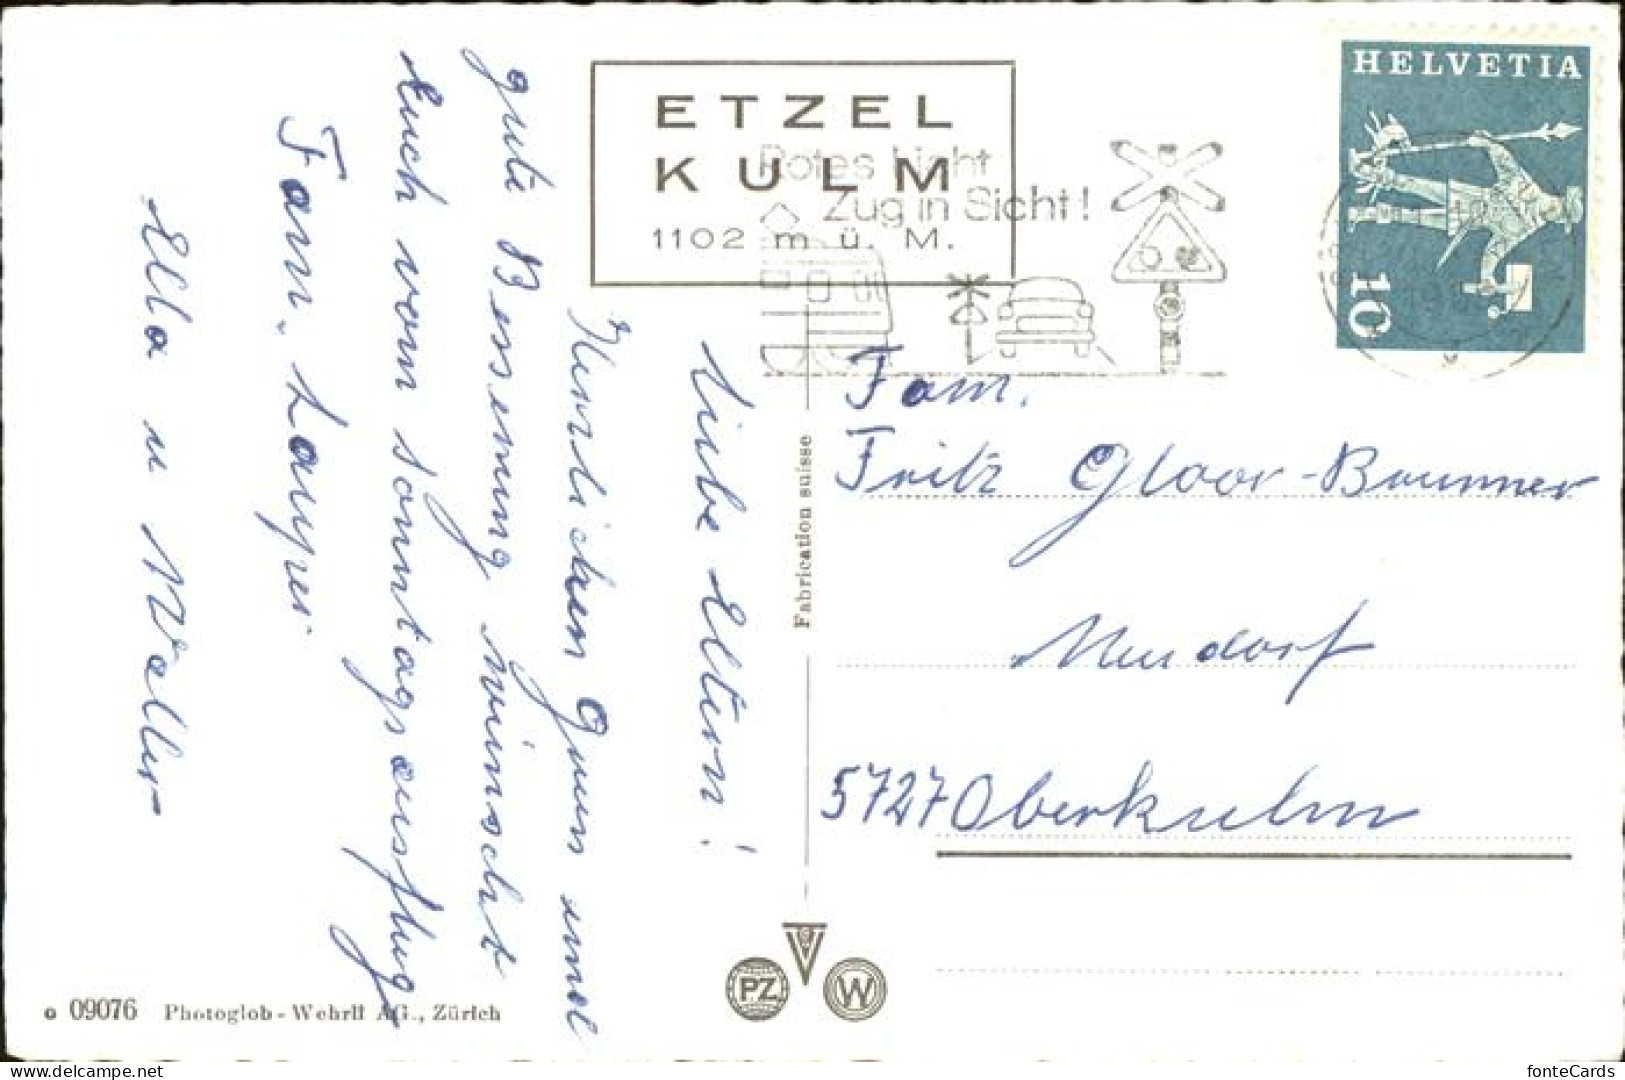 HELVETIA
10
ETZEL
KULM
1102 m ü. M.
Rotes Licht
Zug in Sicht!
Liebe Eltern!
Herzlichen Gruss und
gute Besserung wünscht
Euch vom Sonntagsausflug
Fam. Lauper
Ella u Walter
Fam.
Fritz Gloor-Brunner
Neudorf
5727 Oberkulm
Fabrication suisse
PZ
W
09076 Photoglob-Wehrli AG., Zürich
delcampe.net
fonteCards